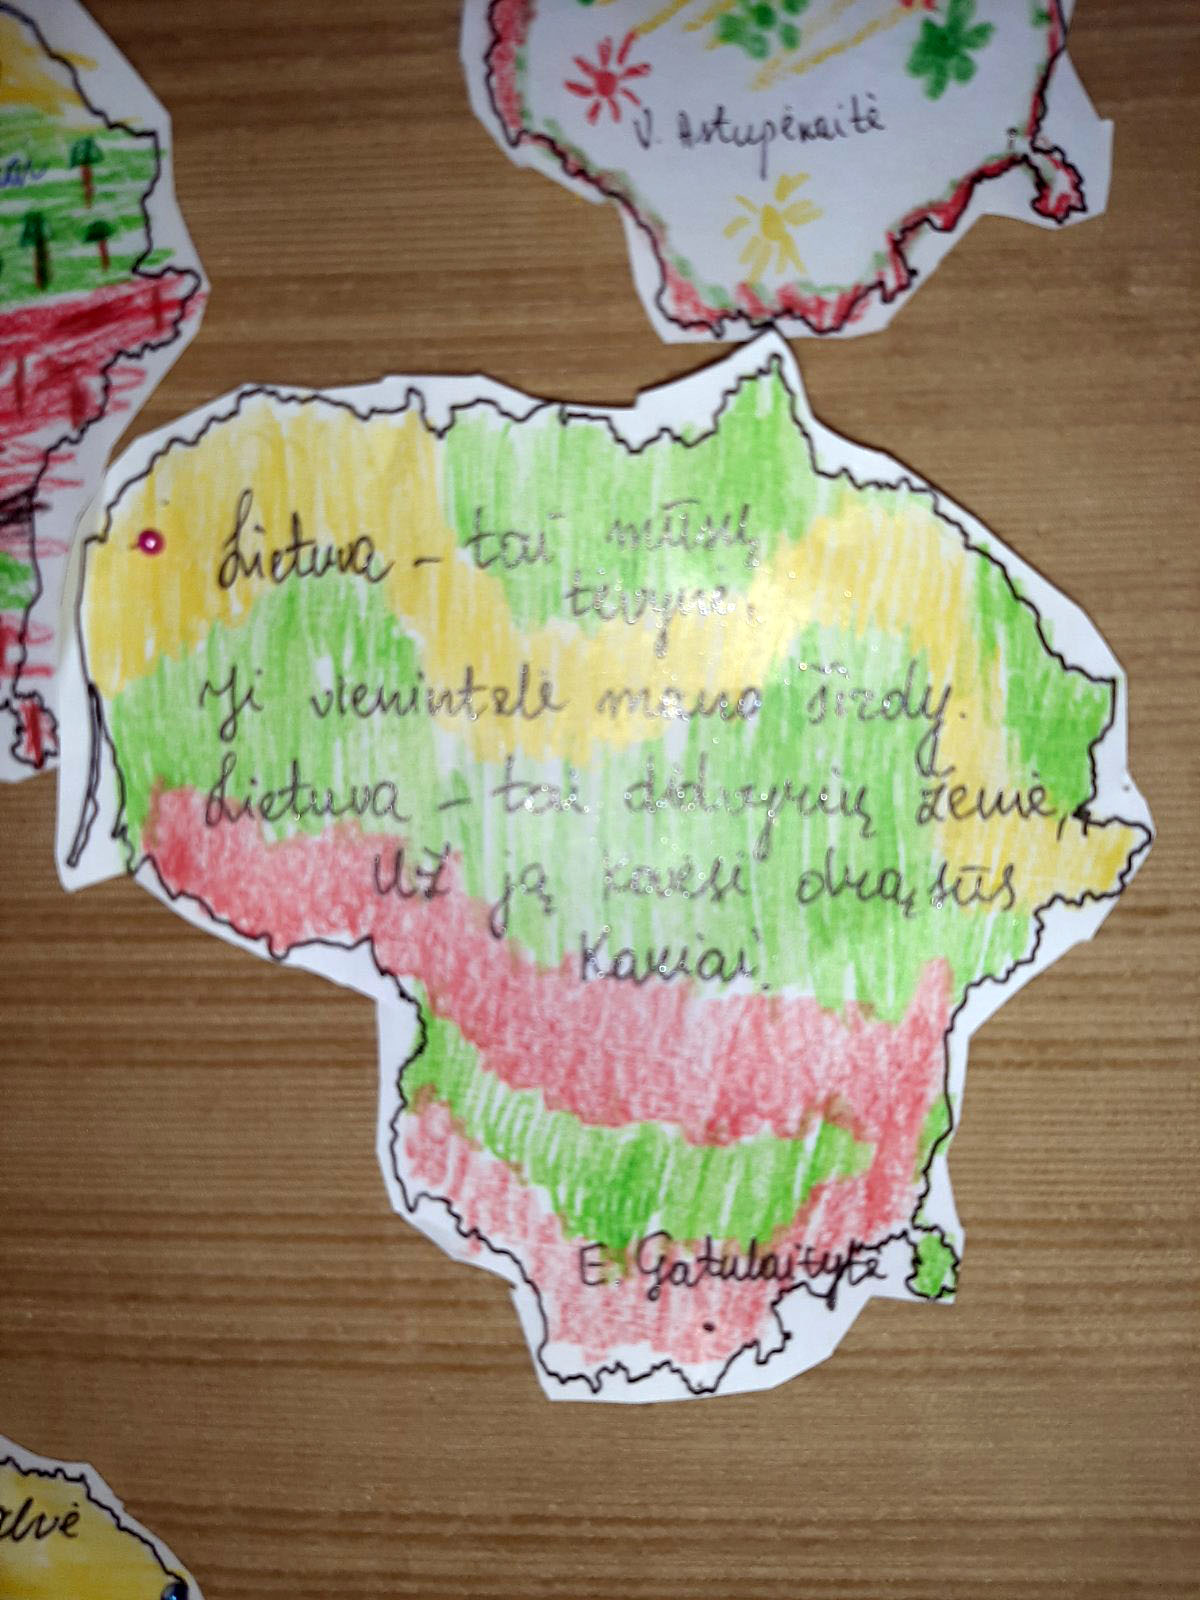 V. Astupėnaitė
Lietuva - tai mūsų
tėvynė,
Ji vienintelė mano širdy.
Lietuva - tai didvyrių žemė,
Už ją kovėsi drąsūs
Kariai.
E. Gatulaitytė
alvė